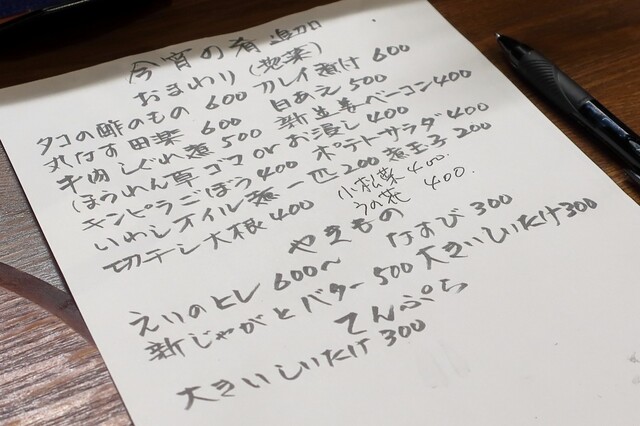 今宵の肴 追加
おまわり(惣菜)
タコの酢のもの 600 カレイ煮付 600
丸なす田楽 600 白あえ 500
牛肉しぐれ煮 500 新生姜ベーコン 400
ほうれん草ゴマ or お浸し 400
キンピラごぼう 400 ポテトサラダ 400
いわしオイル煮 一匹 200 煮玉子 200
切干し大根 400 小松菜 400.
うの花 400.
やきもの
えいのヒレ 600〜 なすび 300
新じゃがとバター 500 大きいしいたけ 300
てんぷら
大きいしいたけ 300